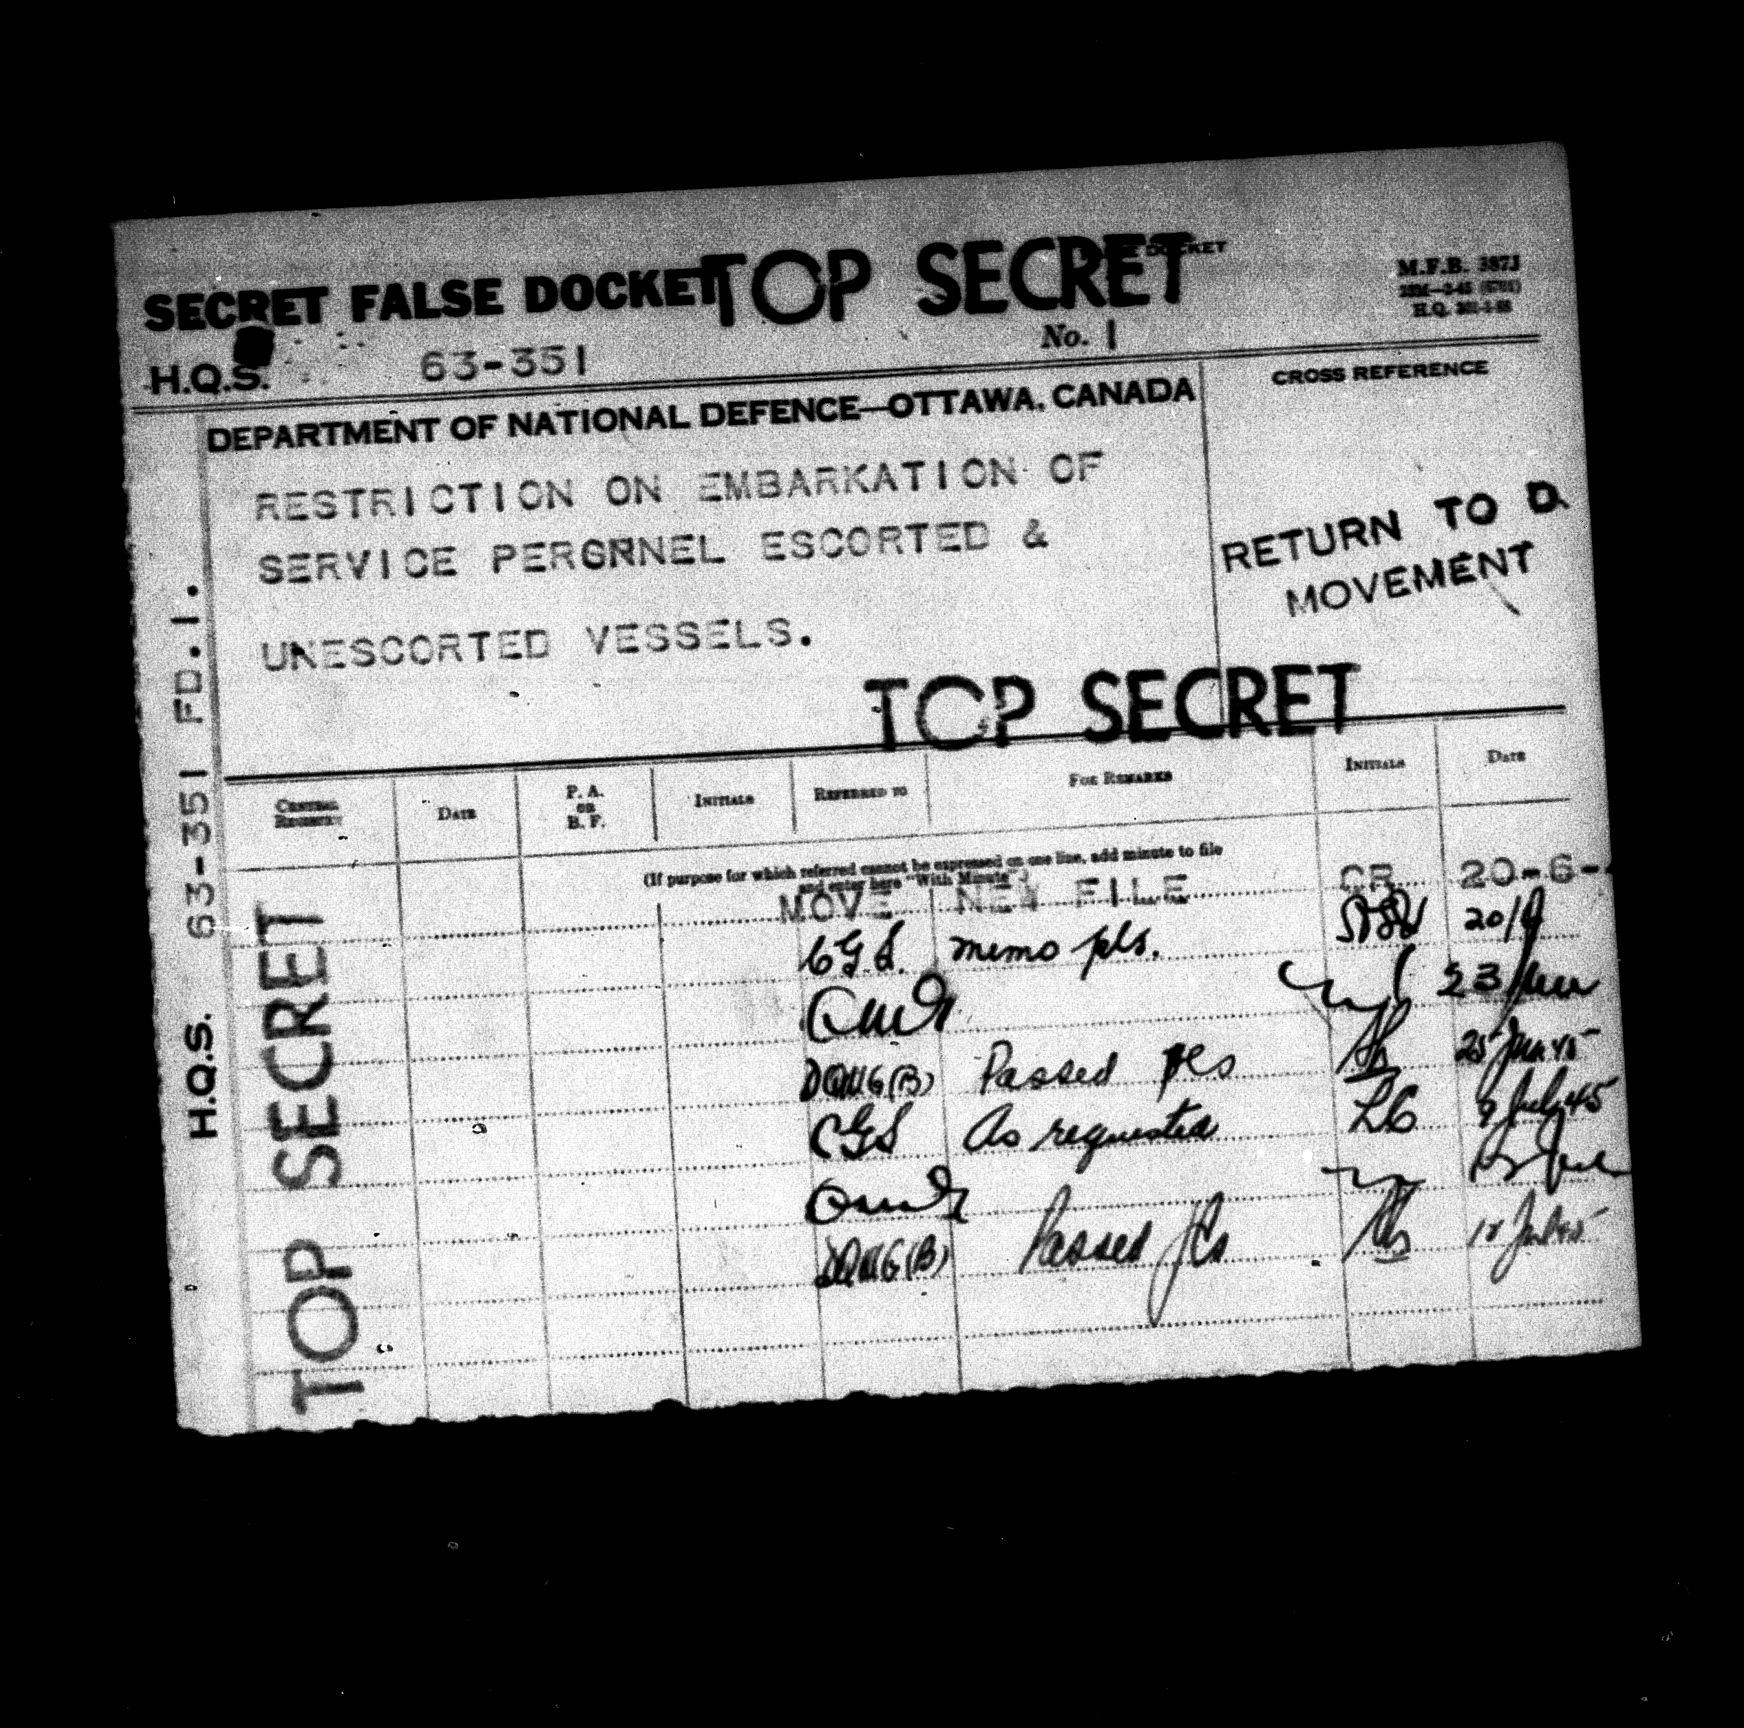 SECRET FALSE DOCKET TOP SECRET
M.F.B. 387J
H.Q.S. 63-351 No. 1
DEPARTMENT OF NATIONAL DEFENCE—OTTAWA, CANADA
CROSS REFERENCE
RESTRICTION ON EMBARKATION OF
SERVICE PERSRNNEL ESCORTED &
UNESCORTED VESSELS.
RETURN TO D.
MOVEMENT
TOP SECRET
H.Q.S. 63-351 FD.1.
TOP SECRET
CENTRAL REGISTRY DATE P. A. OR B. F. INITIALS REFERRED TO FOR REMARKS INITIALS DATE
(If purpose for which referred cannot be expressed on one line, add minute to file
and enter here "With Minute")
MOVE NEW FILE CR 20-6-
CGS memo pls. 20/6
QMG 23 Jun
DQMG(B) Passed pls 25 Jun 45
CGS As requested LC 9 July 45
QMG
DQMG(B) Passed pls Jul 45